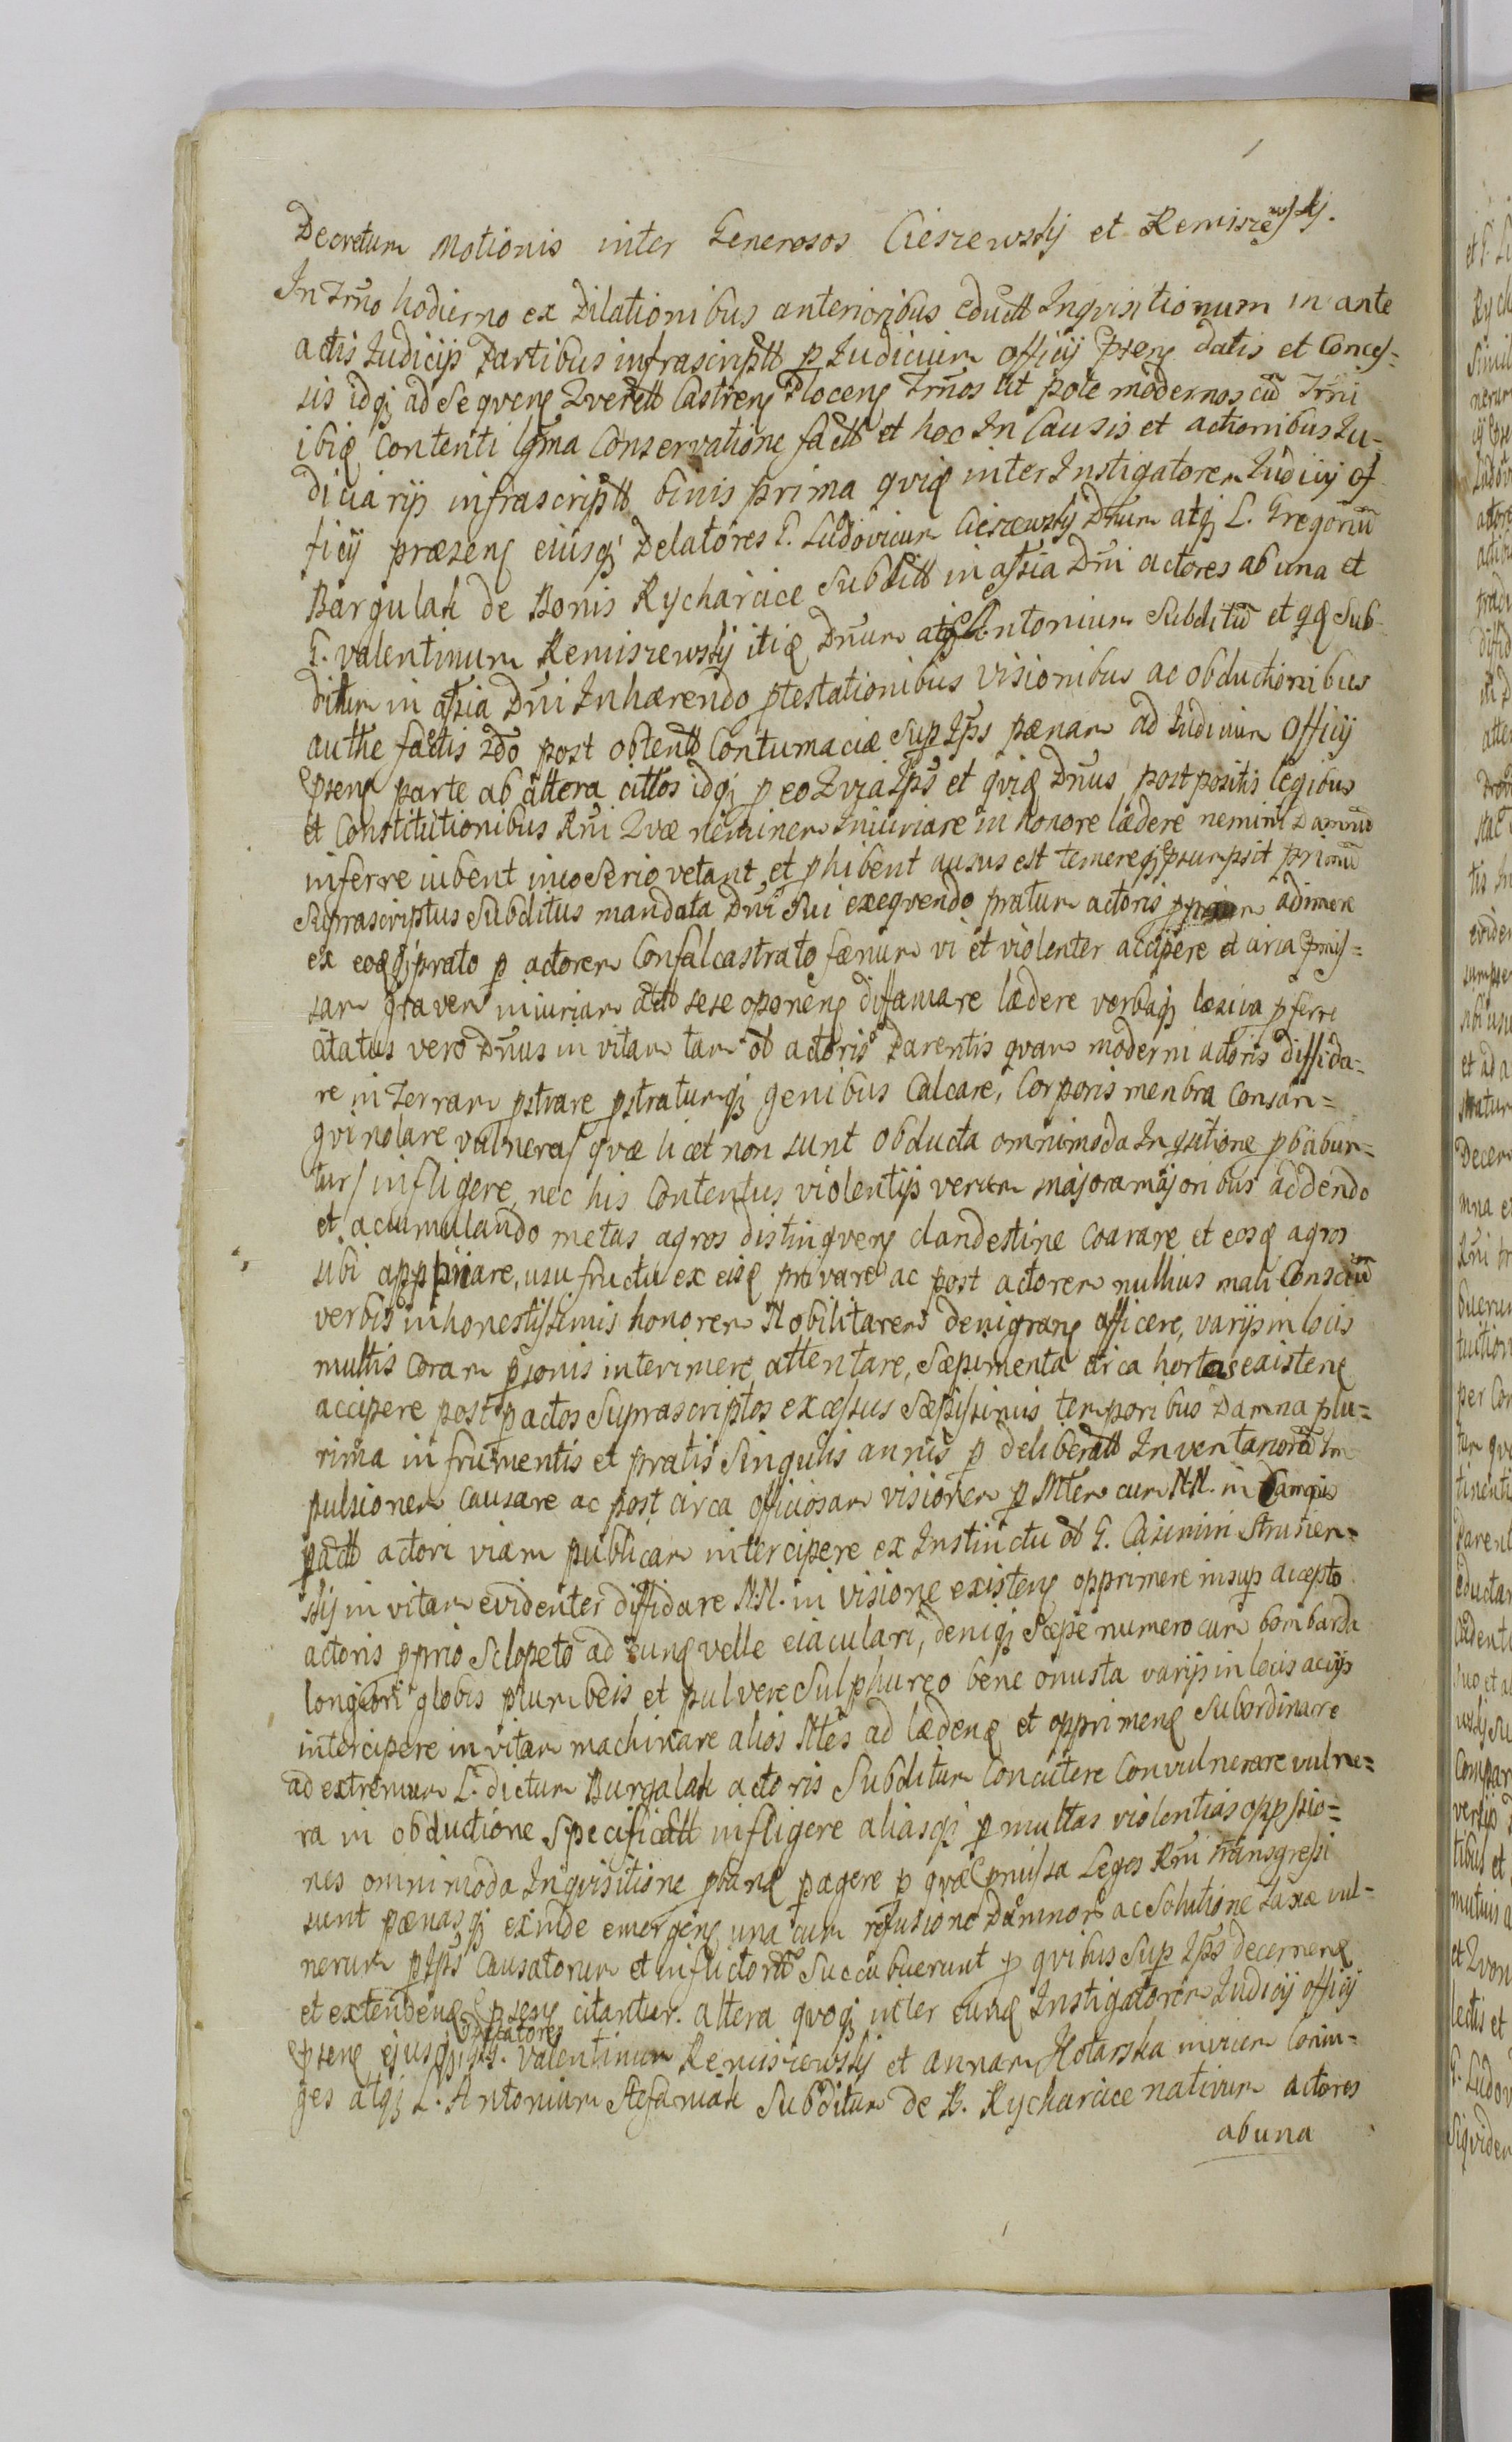 Decretum Motionis inter Generosos Cieszewskij et Remiszewskij.
In Trno hodierno ex Dilationibus anterioribus eductt Inqvisitionum in ante
actis Judicijs Partibus infrascriptt p Judicium officij psens datis et Conces=
sis idqj ad Seqvens Qverett Castrens Plocens Trnos ut pote modernos cū Trni
ibiq contenti lgma Conservatione factt et hoc In Causis et actionibus Ju=
diciarijs infrascriptt binis prima qviq inter Instigatorem Judicij of
ficij præsens eiusqj Delatores G. Ludovicum Cieszewskij Dnum atqj L. Gregoriū
Bargulak de Bonis Rycharcice Subditt in assia Dni actores ab una et
G. Valentinum Remiszewskij itiq Dnum atqj Antonium Subditū et qq Sub
ditum in assia Dni Inhærendo ptestationibus visionibus ac obductionibus
authe factis 2do post obtentt Contumaciæ Sup Ips pænam ad Judicium Officij
psens parte ab altera cittos idqj p eo Qvia Ips et qviq Dnus postpositis legibus
et Constitutionibus Rni Qvæ neminem Iniuriare in honore lædere nemini Damnū
inferre iubent imo Serio vetant et phibent ausus est temereqj psumpsit primū
Suprascriptus Subditus mandata Dni Sui exeqvendo pratum actoris adimere
ex eoqj prato p actorem Confalcastrato fænum vi et violenter accipere et circa pmis=
sam gravem iniuriam actt sese oponens diffamare lædere verbaqj læsiva pferre
citatus vero Dnus in vitam tam ob actoris Parentis qvam moderni actoris diffida=
re in terram pstrare pstratumqj genibus Calcare, Corporis menbra Consan=
gvinolare vulnera/ qvæ licet non sunt obducta omnimoda Inqsitione pbabun=
tur/ infligere, nec his Contentus violentijs verum majora majoribus addendo
et acumulando metas agros distinqvens clandestine Coarare et eosq agros
sibi apppriare, usu fructu ex eisq privare ac post actorem nullius mali Conscium
verbis inhonestissimis honorem Nobilitarem denigrans afficere, varijs in locis
multis Coram psonis interimere attentare, Sæpimenta circa hortos existens
accipere post pactos Suprascriptos excessus Sæpissimis temporibus Damna plu=
rima in frumentis et pratis Singulis annis p deliberatt Inventariorū Im
pulsionem causare ac post circa officiosam visionem p Mtem cum NN. in Damnis
pactt actori viam publicam intercipere ex Instinctu ob G. Casimiri Strunen=
skij in vitam evidenter diffidare N.N. in visione existens opprimere insup accepto
actoris pprio Sclopeto ad eunq velle eiaculari, deniqj Sæpe numero cum bombarda
longiori globis plumbeis et pulvere Sulphureo bene onusta varijs in locis acijs
intercipere in vitam machinare alios Mtes ad lædenq et opprimenq Subordinarre
ad extremum L. dictum Burgalak actoris Subditum Concutere Convulnerare vulne=
ra in obductione Specificatt infligere aliasqj p multas violentias oppssio=
nes omnimoda Inqvisitione pbanq pagere p qvæ pmissa Leges Rni transgressi
sunt pænasqj exinde emergens una cum refusione Damnorū ac Solutione taxæ vul=
nerum p Ips Causatorum et inflictorū Succubuerunt p qvibus Sup Ips decernenq
et extendenq psens citantur. altera qvoqj inter eunq Instigatorem Judicij officij
psens ejusqj Delatores G.G. Valentinum Remiszewskij et Annam Hotarska invicem Coniu=
ges atqj L. Antonium Stefaniak Subditum de B. Rycharcice nativum actores
ab una